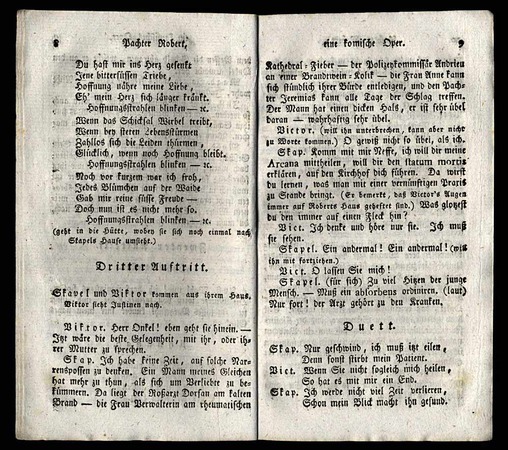 8 Pachter Robert,
Du hast mir ins Herz gesenkt
Jene bittersüssen Triebe,
Hoffnung nähre meine Liebe,
Eh' mein Herz sich länger kränkt.
Hoffnungsstrahlen blinken — ꝛc.
Wenn das Schicksal Wirbel treibt,
Wenn bey steren Lebensstürmen
Zahllos sich die Leiden thürmen,
Glücklich, wenn noch Hoffnung bleibt.
Hoffnungsstrahlen blinken — ꝛc.
Noch vor kurzem war ich froh,
Jedes Blümchen auf der Waide
Gab mir reine süsse Freude —
Doch nun ist es nicht mehr so.
Hoffnungsstrahlen blinken — ꝛc.
(geht in die Hütte, wobey sie sich noch einmal nach
Skapels Hause umsieht.)
Dritter Auftritt.
Skapel und Viktor kommen aus ihrem Haus.
Viktor sieht Justinen nach.
Viktor. Herr Onkel! eben geht sie hinein. —
Itzt wäre die beste Gelegenheit, mit ihr, oder ih-
rer Mutter zu sprechen.
Skap. Ich habe keine Zeit, auf solche Nar-
renspossen zu denken. Ein Mann meines Gleichen
hat mehr zu thun, als sich um Verliebte zu be-
kümmern. Da liegt der Roßarzt Dorsan am kalten
Brand — die Frau Verwalterin am rheumatischen
eine komische Oper. 9
Kathedral-Fieber — der Polizeykommissär Andrien
an einer Brandwein-Kolik — die Frau Anne kann
sich stündlich ihrer Bürde entledigen, und den Pach-
ter Jeremias kann alle Tage der Schlag treffen.
Der Mann hat einen dicken Hals, er ist sehr übel
daran — wahrhaftig sehr übel.
Victor. (will ihn unterbrechen, kann aber nicht
zu Worte kommen.) O gewiß nicht so übel, als ich.
Skap. Komm mit mir Neff, ich will dir meine
Arcana mittheilen, will dir den statum mortis
erklären, auf den Kirchhof dich führen. Da wirst
du lernen, was man mit einer vernünftigen Praxis
zu Stande bringt. (Er bemerkt, daß Victor's Augen
immer auf Roberts Haus geheftet sind.) Was glotzest
du den immer auf einen Fleck hin?
Vict. Ich denke und höre nur sie. Ich muß
sie sehen.
Skapel. Ein andermal! Ein andermal! (will
ihn mit fortziehen.)
Vict. O lassen Sie mich!
Skapel. (für sich) Zu viel Hitzen der junge
Mensch. — Muß ein absorbens ordiniren. (laut)
Nur fort! der Arzt gehört zu den Kranken.
Duett.
Skap. Nur geschwind, ich muß itzt eilen,
Denn sonst stirbt mein Patient.
Vict. Wenn Sie nicht sogleich mich heilen,
So hat es mit mir ein End.
Skap. Ich werde nicht viel Zeit verlieren,
Schon mein Blick macht ihn gesund.